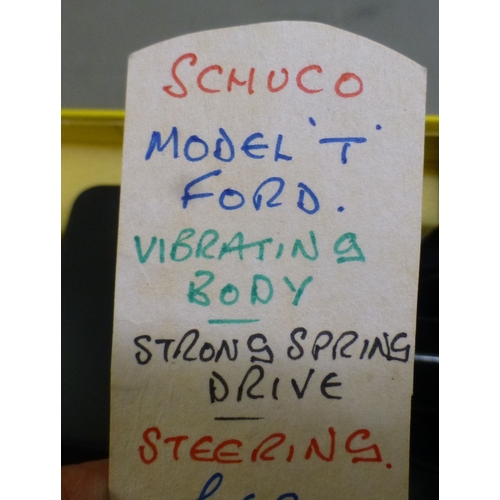 SCHUCO
MODEL 'T'
FORD.
VIBRATING
BODY
STRONG SPRING
DRIVE
STEERING.